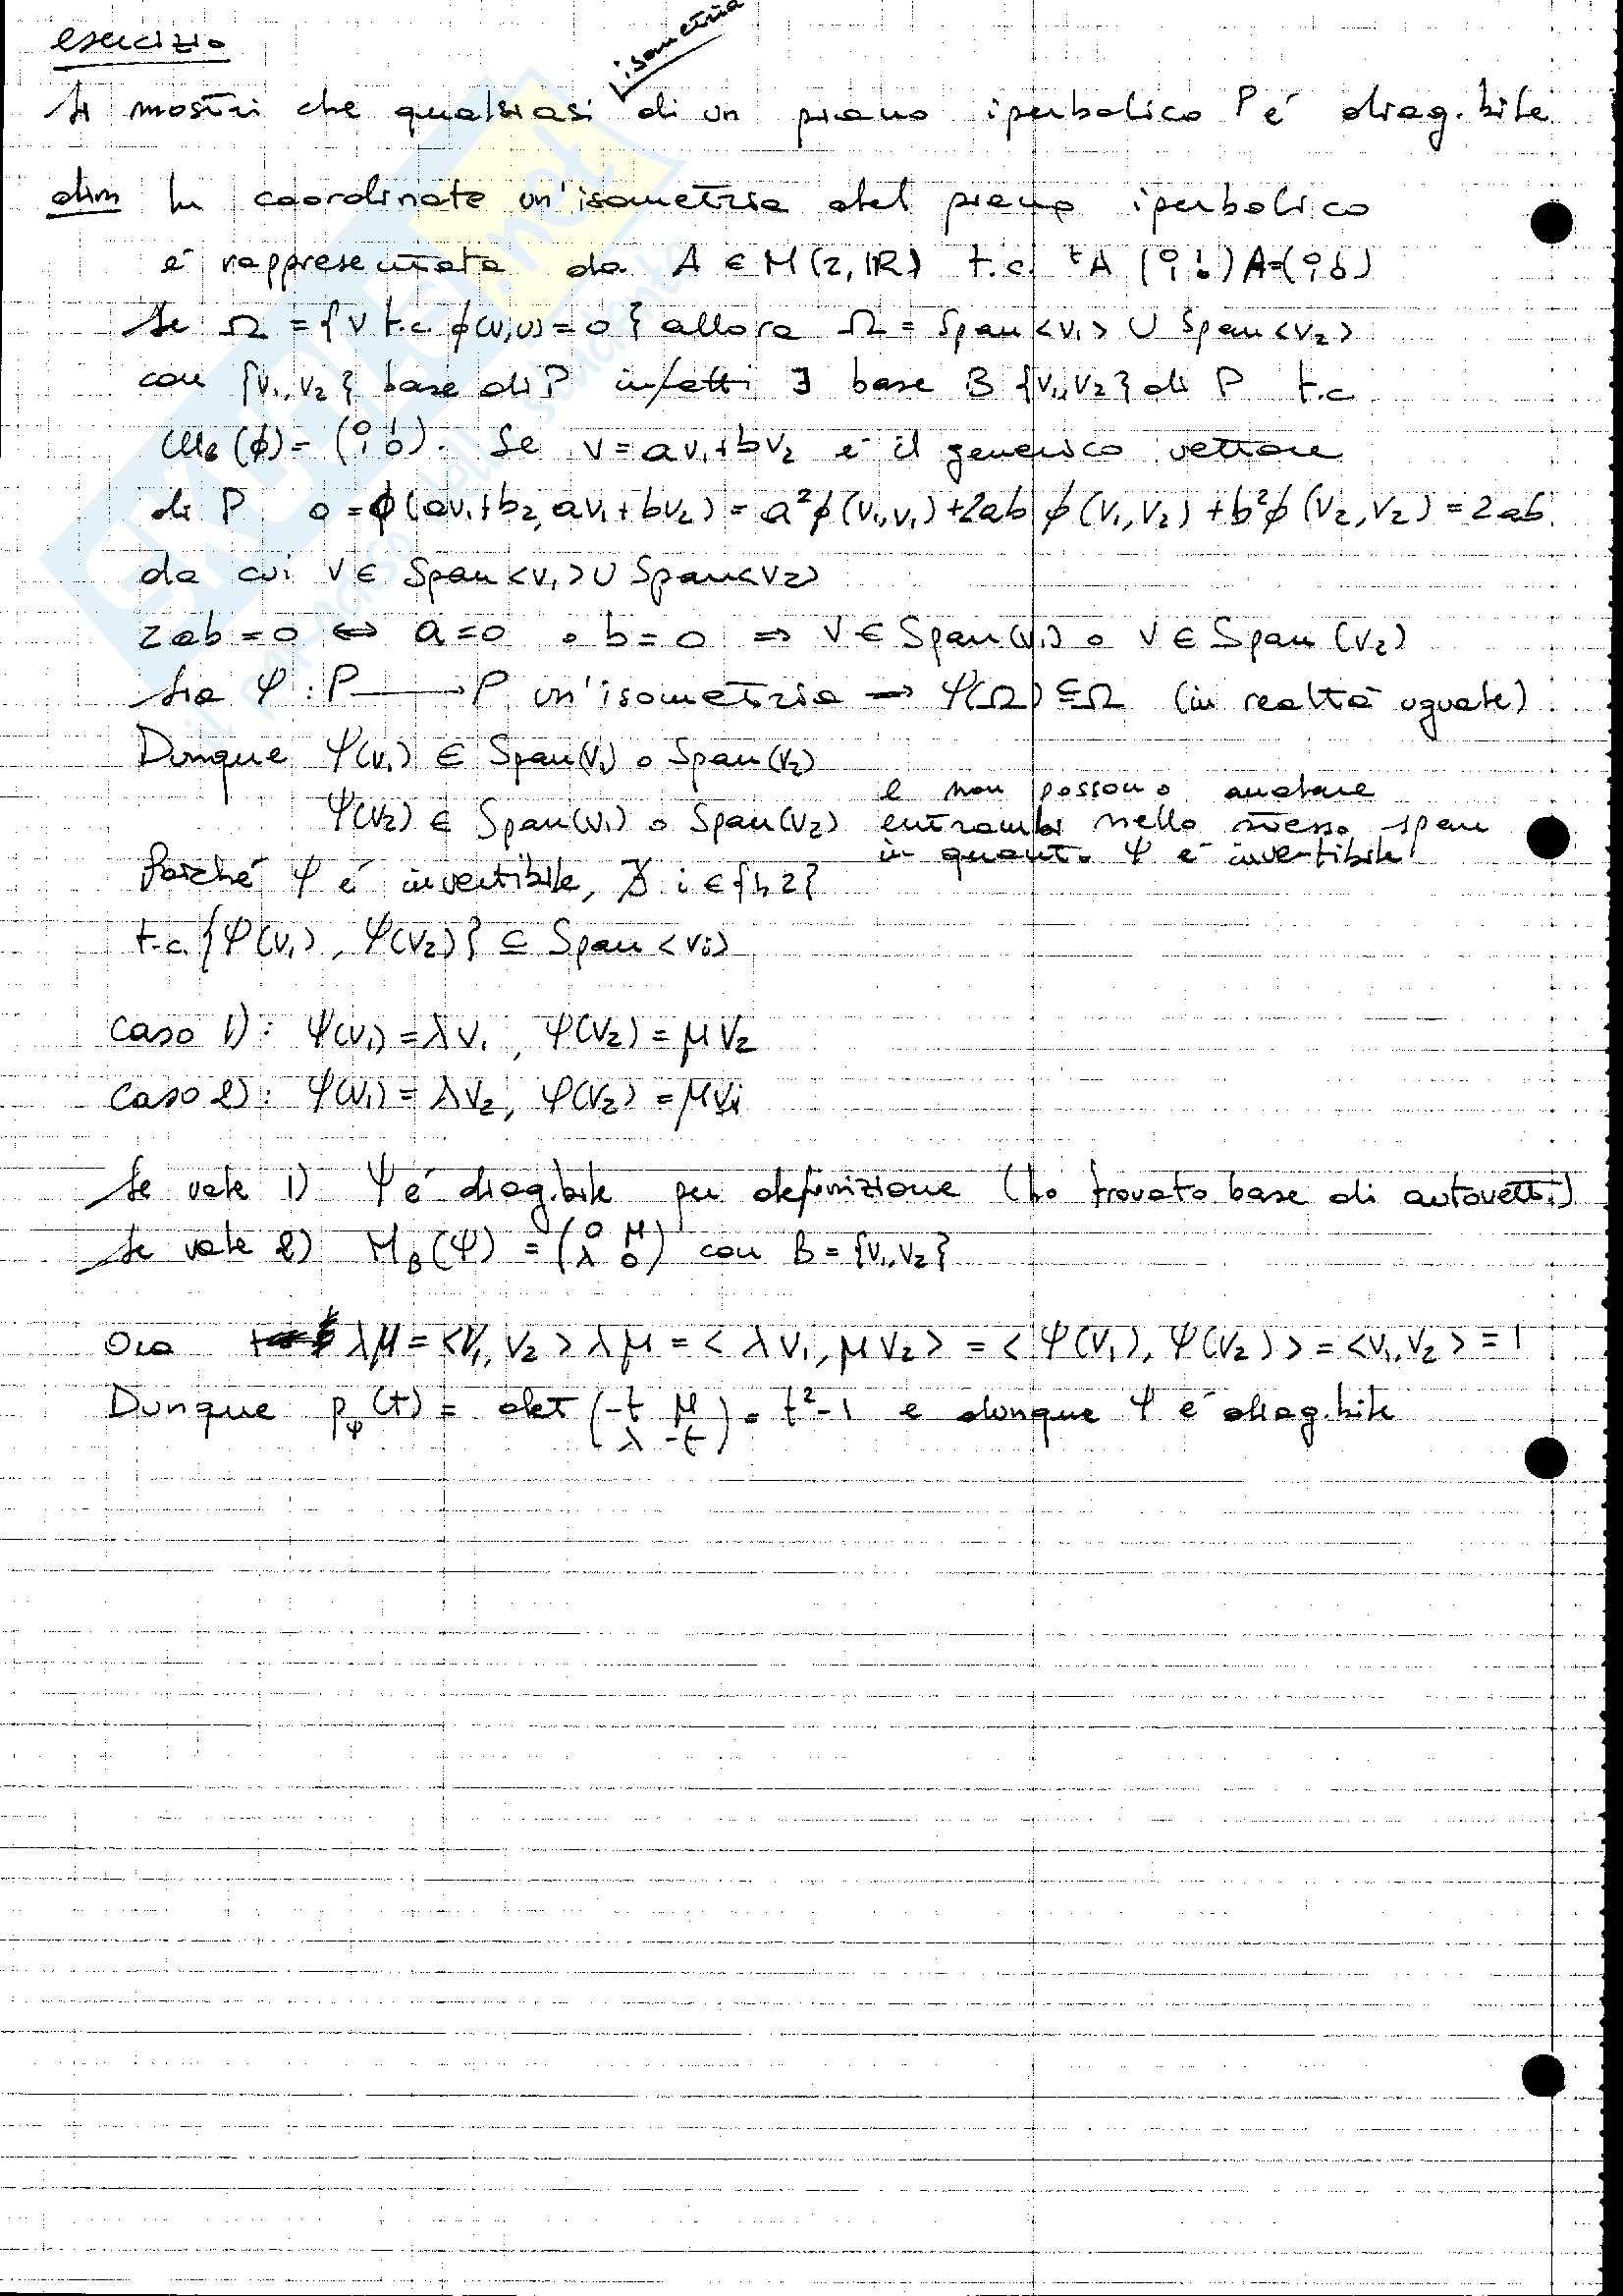 esercizio
isometria
Si mostri che qualsiasi di un piano iperbolico P é diag.bile
dim In coordinate un'isometria del piano iperbolico
é rappresentata da A ∈ M(2,ℝ) t.c. ᵗA (0 1 / 1 0) A = (0 1 / 1 0)
Se Ω = {v t.c. ϕ(v,v)=0} allora Ω = Span<v₁> ∪ Span<v₂>
con {v₁,v₂} base di P infatti ∃ base B {v₁,v₂} di P t.c
M_B(ϕ) = (0 1 / 1 0). Se v = av₁+bv₂ é il generico vettore
di P 0 = ϕ(av₁+b₂, av₁+bv₂) = a²ϕ(v₁,v₁)+2ab ϕ(v₁,v₂)+b²ϕ(v₂,v₂) = 2ab
da cui v ∈ Span<v₁> ∪ Span<v₂>
2ab = 0 ⇔ a=0 o b=0 ⇒ v ∈ Span(v₁) o v ∈ Span(v₂)
Sia Ψ : P → P un'isometria → Ψ(Ω) ⊆ Ω (in realtà uguale)
Dunque Ψ(v₁) ∈ Span(v₁) o Span(v₂)
Ψ(v₂) ∈ Span(v₁) o Span(v₂) e non possono andare
entrambi nello stesso span
in quanto Ψ é invertibile
Poiché Ψ é invertibile, ∄ i ∈ {1,2}
t.c. {Ψ(v₁), Ψ(v₂)} ⊆ Span<vᵢ>
Caso 1): Ψ(v₁) = λv₁, Ψ(v₂) = μv₂
Caso 2): Ψ(v₁) = λv₂, Ψ(v₂) = μv₁
Se vale 1) Ψ é diag.bile per definizione (ho trovato base di autovett.)
Se vale 2) M_B(Ψ) = (0 μ / λ 0) con B = {v₁,v₂}
Ora λμ = <v₁,v₂> λμ = <λv₁, μv₂> = <Ψ(v₁), Ψ(v₂)> = <v₁,v₂> = 1
Dunque p_Ψ(t) = det (-t μ / λ -t) = t²-1 e dunque Ψ é diag.bile